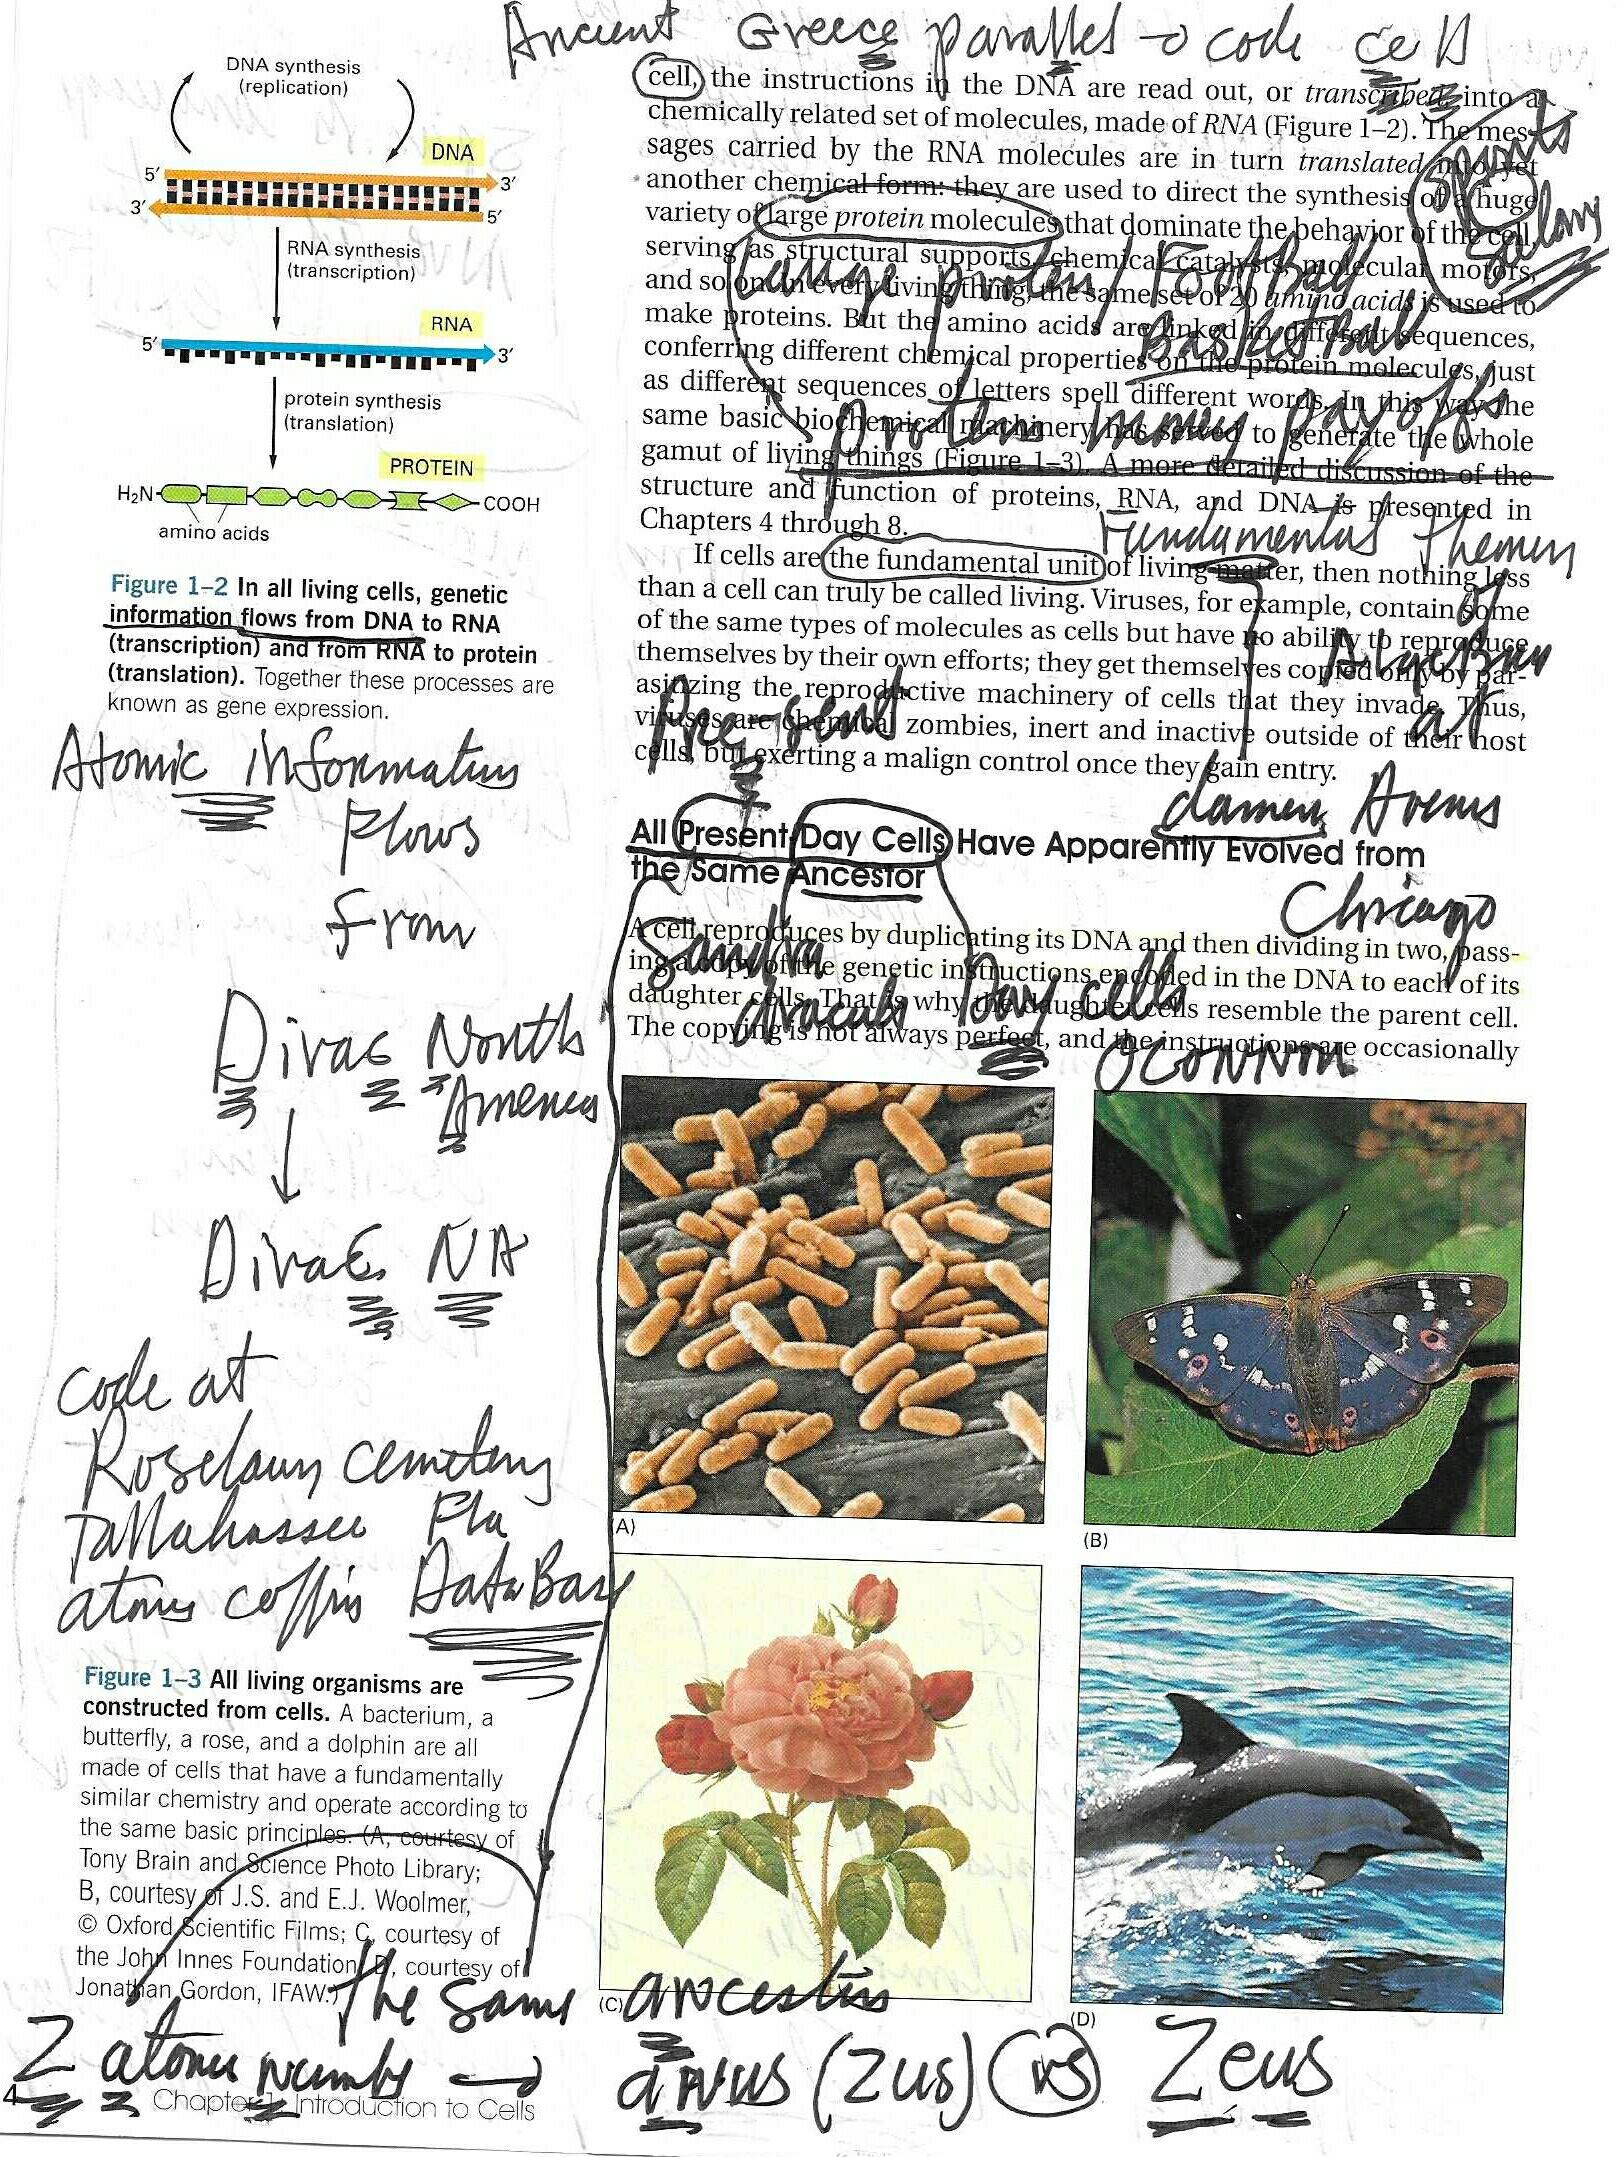 Ancient Greece parallel → code cell
DNA synthesis
(replication)
DNA
5′ 3′
3′ 5′
RNA synthesis
(transcription)
RNA
5′ 3′
protein synthesis
(translation)
PROTEIN
H₂N COOH
amino acids
Figure 1–2 In all living cells, genetic
information flows from DNA to RNA
(transcription) and from RNA to protein
(translation). Together these processes are
known as gene expression.
Atomic information
Flows
From
Divac North
America
Divac NA
code at
Roselawn cemetery
Tallahassee Fla
atoms coffin DataBase
Figure 1–3 All living organisms are
constructed from cells. A bacterium, a
butterfly, a rose, and a dolphin are all
made of cells that have a fundamentally
similar chemistry and operate according to
the same basic principles. (A, courtesy of
Tony Brain and Science Photo Library;
B, courtesy of J.S. and E.J. Woolmer,
© Oxford Scientific Films; C, courtesy of
the John Innes Foundation; D, courtesy of
Jonathan Gordon, IFAW.)
cell, the instructions in the DNA are read out, or transcribed, into a
chemically related set of molecules, made of RNA (Figure 1–2). The mes-
sages carried by the RNA molecules are in turn translated into yet
another chemical form: they are used to direct the synthesis of a huge
variety of large protein molecules that dominate the behavior of the cell,
serving as structural supports, chemical catalysts, molecular motors,
and so on. In every living thing, the same set of 20 amino acids is used to
make proteins. But the amino acids are linked in different sequences,
conferring different chemical properties on the protein molecules, just
as different sequences of letters spell different words. In this way the
same basic biochemical machinery has served to generate the whole
gamut of living things (Figure 1–3). A more detailed discussion of the
structure and function of proteins, RNA, and DNA is presented in
Chapters 4 through 8.
sports
salary
Large protein / FootBall
BasketBall
proteins money payoffs
If cells are the fundamental unit of living matter, then nothing less
than a cell can truly be called living. Viruses, for example, contain some
of the same types of molecules as cells but have no ability to reproduce
themselves by their own efforts; they get themselves copied only by par-
asitizing the reproductive machinery of cells that they invade. Thus,
viruses are chemical zombies, inert and inactive outside of their host
cells, but exerting a malign control once they gain entry.
Fundamental
of
at
damen
Chicago
Pre-sent
All Present-Day Cells Have Apparently Evolved from
the Same Ancestor
A cell reproduces by duplicating its DNA and then dividing in two, pass-
ing a copy of the genetic instructions encoded in the DNA to each of its
daughter cells. That is why the daughter cells resemble the parent cell.
The copying is not always perfect, and the instructions are occasionally
Sandra
Day cells
OCONNOR
(A)
(B)
(C)
(D)
the same ancestors
Z atomic number → anus (Zus) vs Zeus
4 Chapter 1: Introduction to Cells